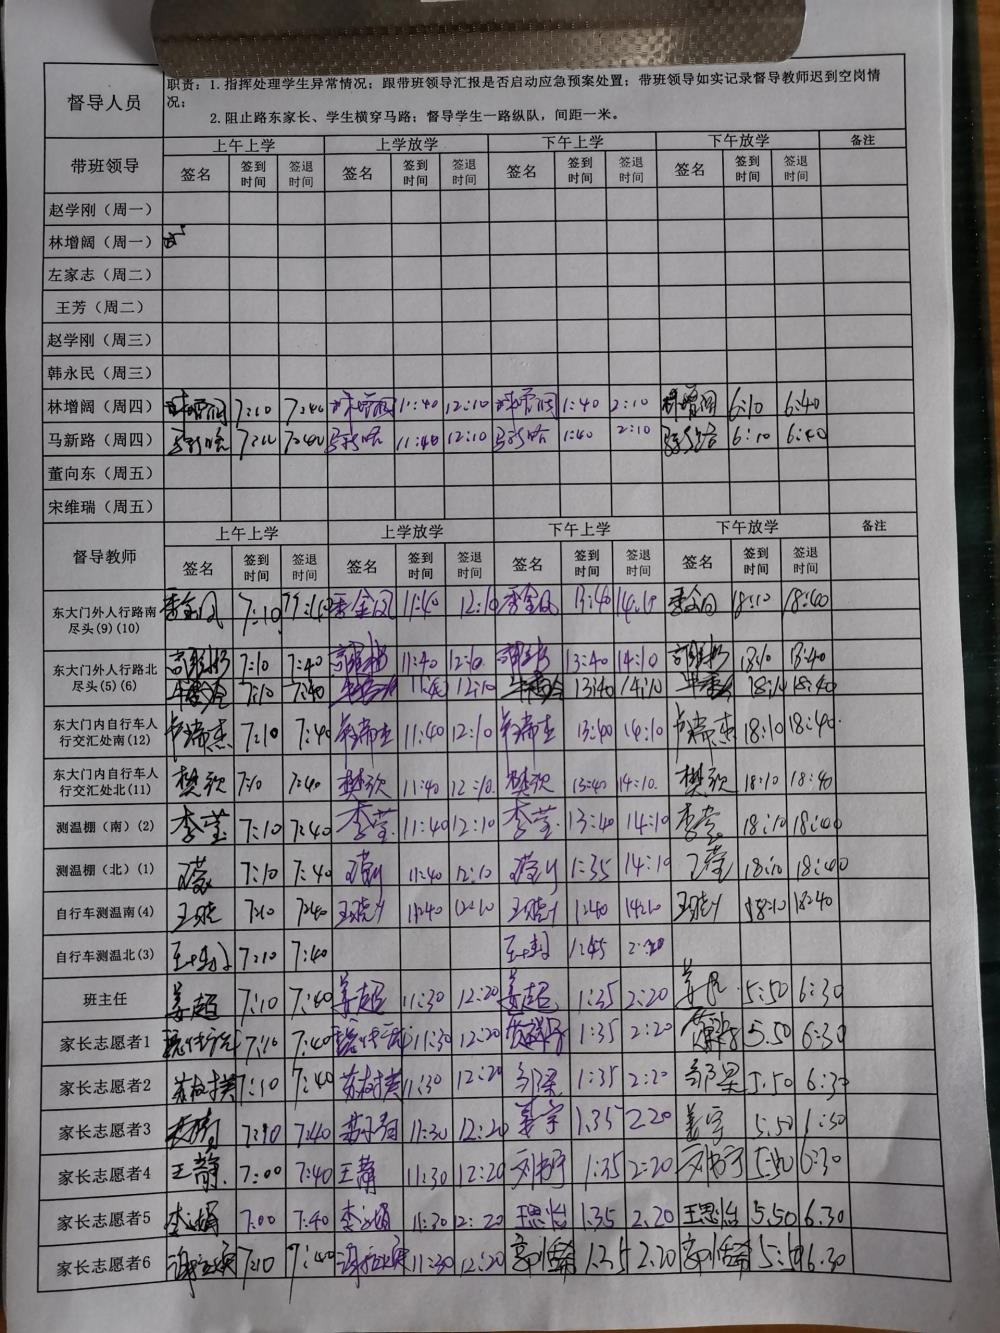 督导人员 职责：1. 指挥处理学生异常情况；跟带班领导汇报是否启动应急预案处置；带班领导如实记录督导教师迟到空岗情
况；
2. 阻止路东家长、学生横穿马路；督导学生一路纵队，间距一米。
带班领导 上午上学 上学放学 下午上学 下午放学 备注
签名 签到时间 签退时间 签名 签到时间 签退时间 签名 签到时间 签退时间 签名 签到时间 签退时间
赵学刚（周一）
林增阔（周一）
左家志（周二）
王芳（周二）
赵学刚（周三）
韩永民（周三）
林增阔（周四） 林增阔 7:10 7:40 林增阔 11:40 12:10 林增阔 1:40 2:10 林增阔 6:10 6:40
马新路（周四） 马新路 7:10 7:40 马新路 11:40 12:10 马新路 1:40 2:10 马新路 6:10 6:40
董向东（周五）
宋维瑞（周五）
督导教师 上午上学 上学放学 下午上学 下午放学 备注
签名 签到时间 签退时间 签名 签到时间 签退时间 签名 签到时间 签退时间 签名 签到时间 签退时间
东大门外人行路南
尽头(9)(10) 7:10 7:40 11:40 12:10 13:40 14:10 18:10 18:40
东大门外人行路北
尽头(5)(6) 7:10 7:40 11:40 12:10 13:40 14:10 18:10 18:40
7:10 7:40 11:40 12:10 13:40 14:10 18:10 18:40
东大门内自行车人
行交汇处南(12) 7:10 7:40 11:40 12:10 13:40 14:10 18:10 18:40
东大门内自行车人
行交汇处北(11) 樊欢 7:10 7:40 樊欢 11:40 12:10 樊欢 13:40 14:10 樊欢 18:10 18:40
测温棚（南）(2) 李莹 7:10 7:40 李莹 11:40 12:10 李莹 13:40 14:10 李莹 18:10 18:40
测温棚（北）(1) 7:10 7:40 11:40 12:10 1:35 14:10 18:10 18:40
自行车测温南(4) 7:10 7:40 11:40 12:10 1:40 14:10 18:10 18:40
自行车测温北(3) 7:10 7:40 1:45 2:10
班主任 姜超 7:10 7:40 姜超 11:30 12:20 姜超 1:35 2:20 5:50 6:30
家长志愿者1 7:10 7:40 11:30 12:20 1:35 2:20 5.50 6:30
家长志愿者2 7:10 7:40 11:30 12:20 邹梁 1:35 2:20 邹梁 5.50 6:30
家长志愿者3 7:40 11:30 12:20 姜宇 1:35 2.20 姜宇 5.50 6:30
家长志愿者4 王静 7:00 7:40 王静 11:30 12:20 1:35 2:20 5:50 6:30
家长志愿者5 7:00 7:40 11:30 12:20 王思怡 1:35 2.20 王思怡 5.50 6.30
家长志愿者6 7:10 7:40 11:30 12:20 1:35 2.20 5:50 6.30